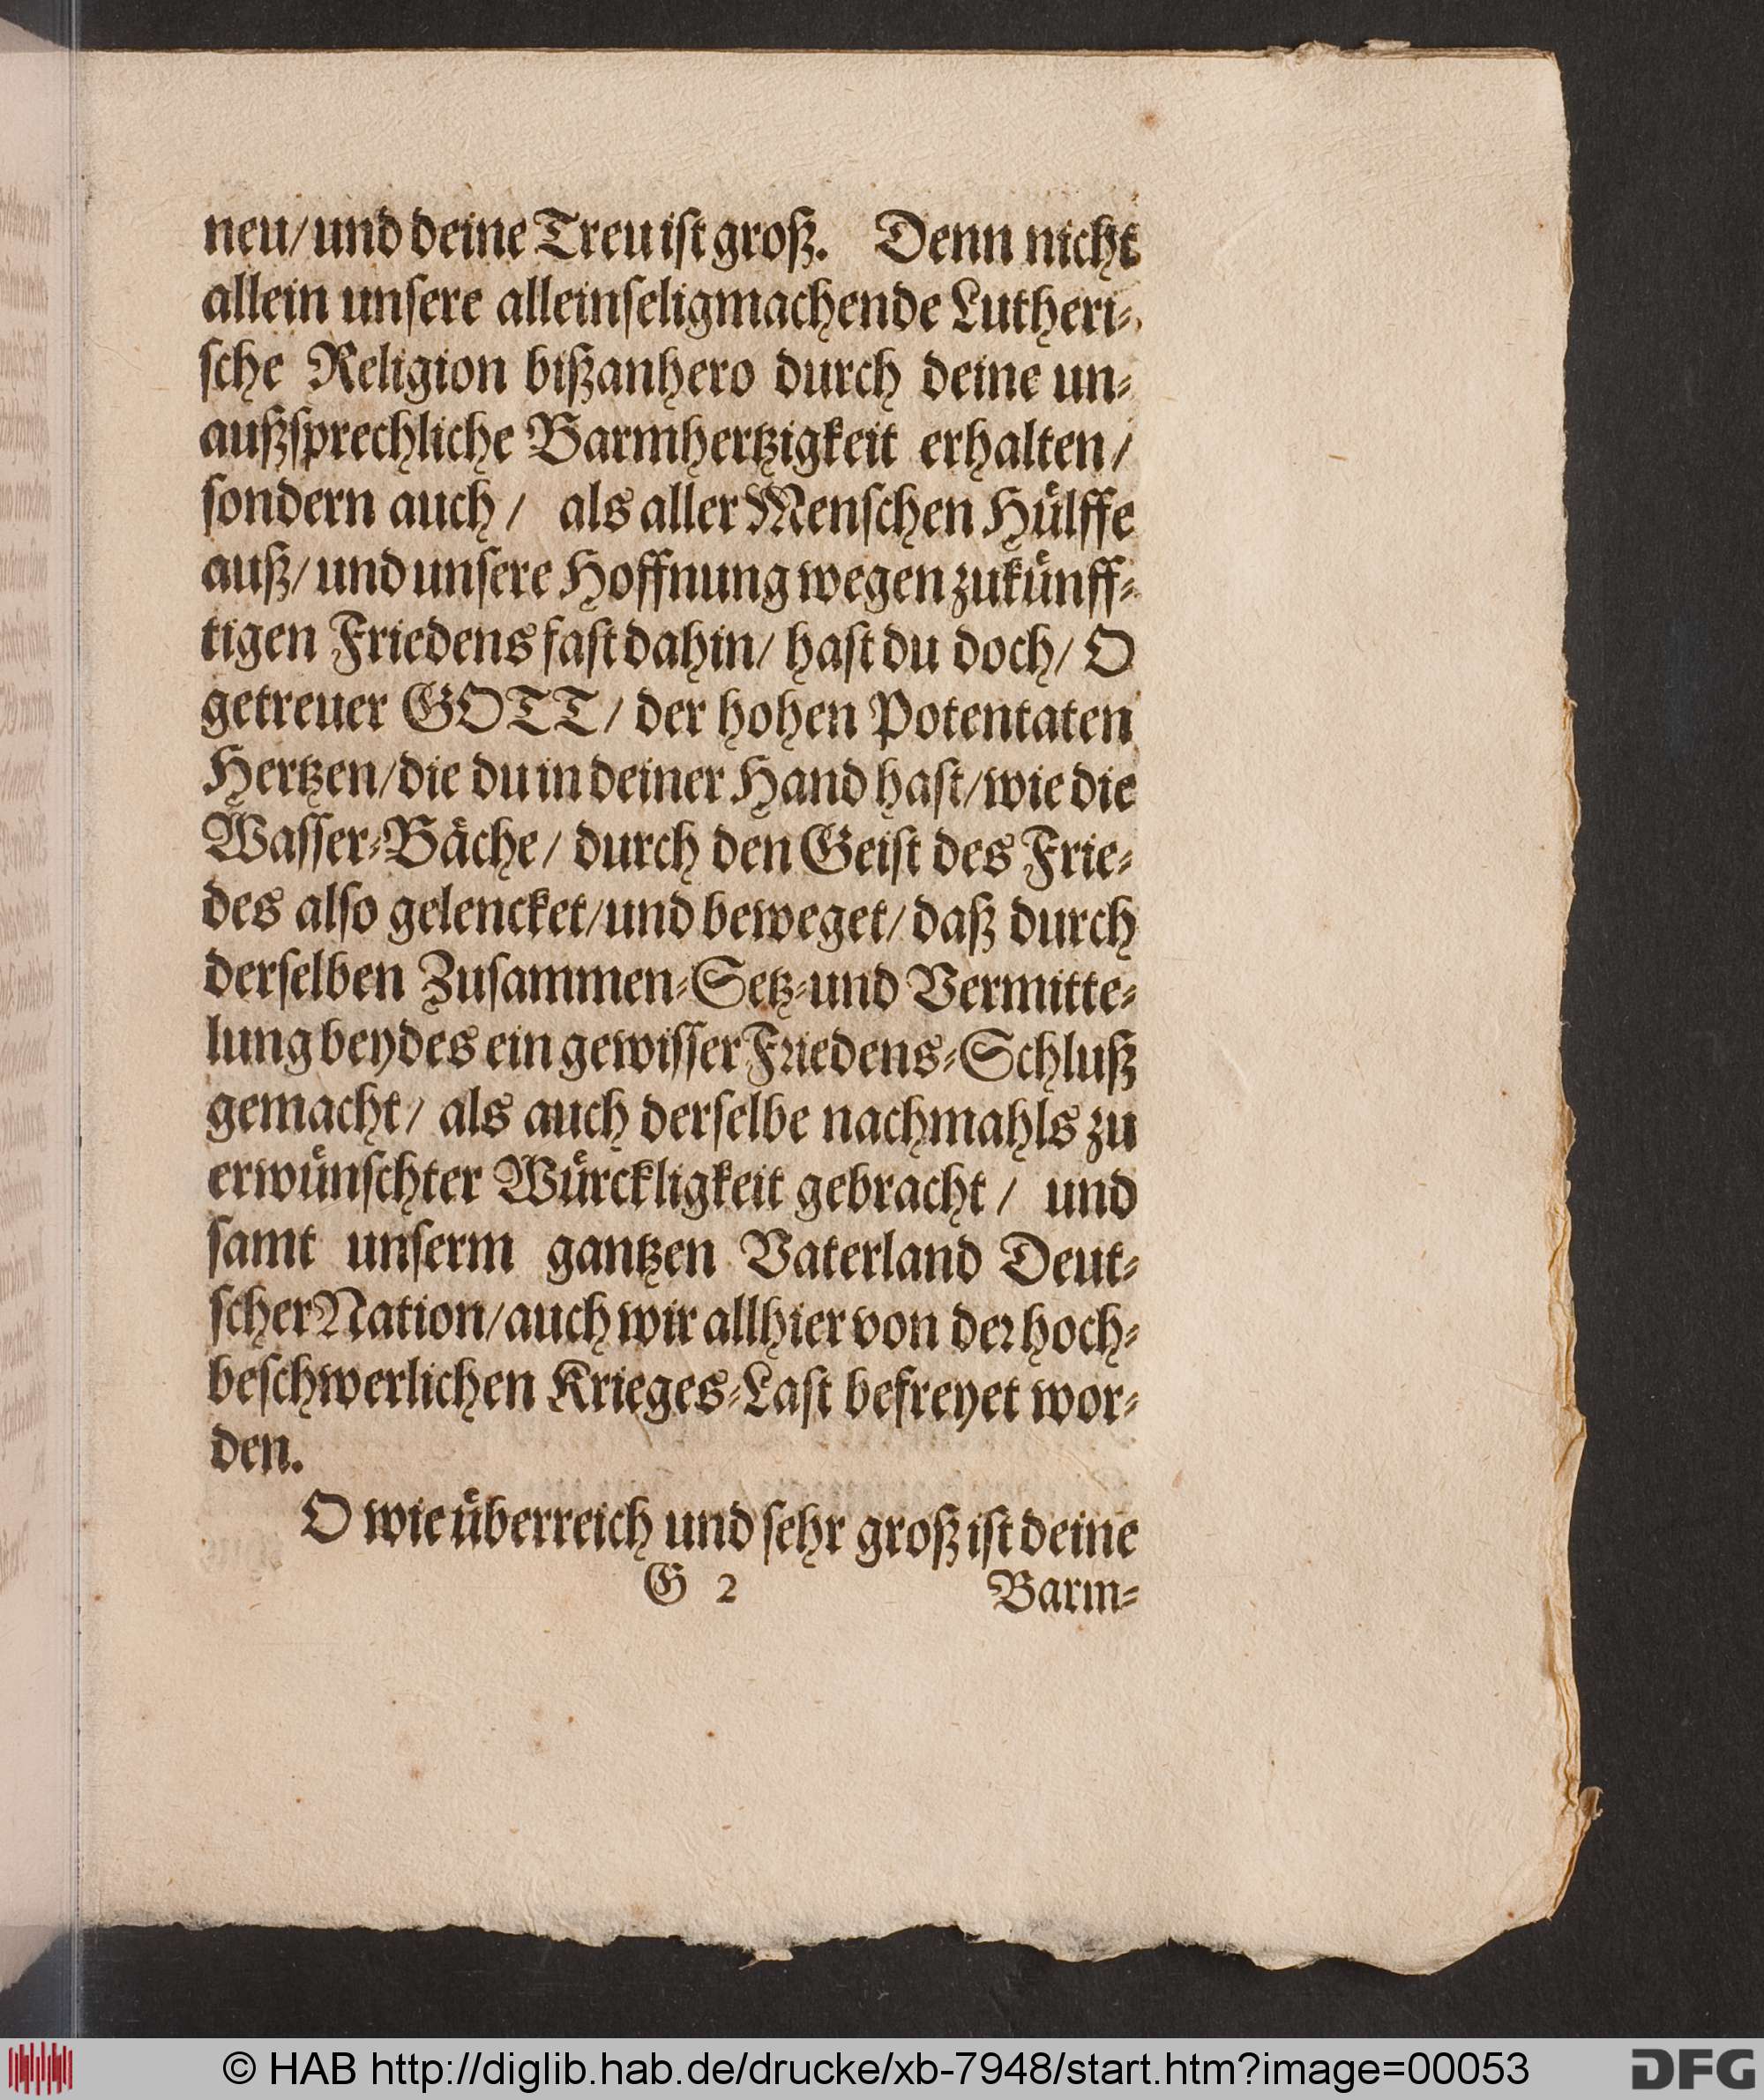 neu/ und deine Treu iſt groß. Denn nicht
allein unſere alleinſeligmachende Lutheri-
ſche Religion bißanhero durch deine un-
außſprechliche Barmhertzigkeit erhalten/
ſondern auch/ als aller Menſchen Huͤlffe
auß/ und unſere Hoffnung wegen zukuͤnff-
tigen Friedens faſt dahin/ haſt du doch/ O
getreuer GOTT/ der hohen Potentaten
Hertzen/ die du in deiner Hand haſt/ wie die
Waſſer-Baͤche/ durch den Geiſt des Frie-
des alſo gelencket/ und beweget/ daß durch
derſelben Zuſammen-Setz- und Vermitte-
lung beydes ein gewiſſer Friedens-Schluß
gemacht/ als auch derſelbe nachmahls zu
erwuͤnſchter Wuͤrckligkeit gebracht/ und
ſamt unſerm gantzen Vaterland Deut-
ſcher Nation/ auch wir allhier von der hoch-
beſchwerlichen Krieges-Laſt befreyet wor-
den.
O wie uͤberreich und ſehr groß iſt deine
G 2 Barm-
© HAB http://diglib.hab.de/drucke/xb-7948/start.htm?image=00053
DFG